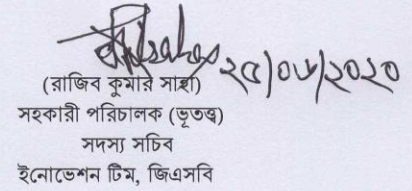 ২৫/০৮/২০২০
(রাজিব কুমার সাহা)
সহকারী পরিচালক (ভূতত্ত্ব)
সদস্য সচিব
ইনোভেশন টিম, জিএসবি